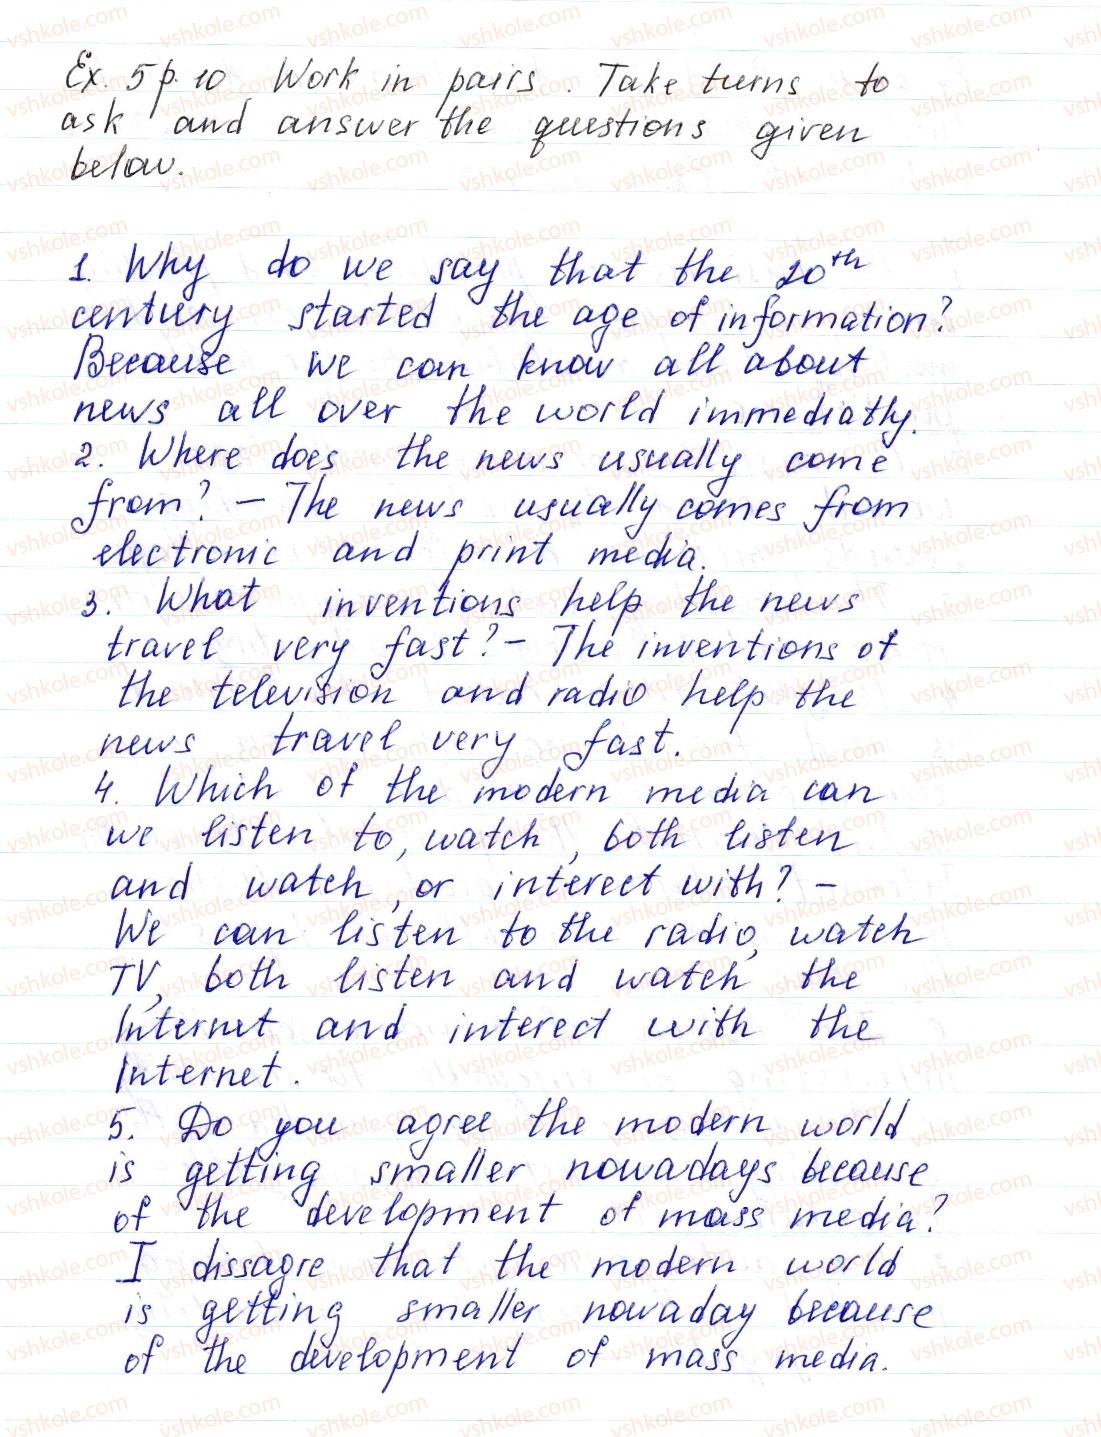 Ex. 5 p. 10 Work in pairs. Take turns to
ask and answer the questions given
below.
1. Why do we say that the 20th
century started the age of information?
Because we can know all about
news all over the world immediatly.
2. Where does the news usually come
from? – The news usually comes from
electronic and print media.
3. What inventions help the news
travel very fast? – The inventions of
the television and radio help the
news travel very fast.
4. Which of the modern media can
we listen to, watch, both listen
and watch, or interect with? –
We can listen to the radio, watch
TV, both listen and watch the
Internet and interect with the
Internet.
5. Do you agree the modern world
is getting smaller nowadays because
of the development of mass media?
I dissagre that the modern world
is getting smaller nowaday because
of the development of mass media.